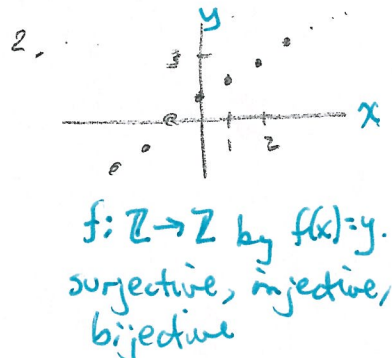 y
2.
3
x
1 2
f: ℤ→ℤ by f(x)=y.
surjective, injective,
bijective